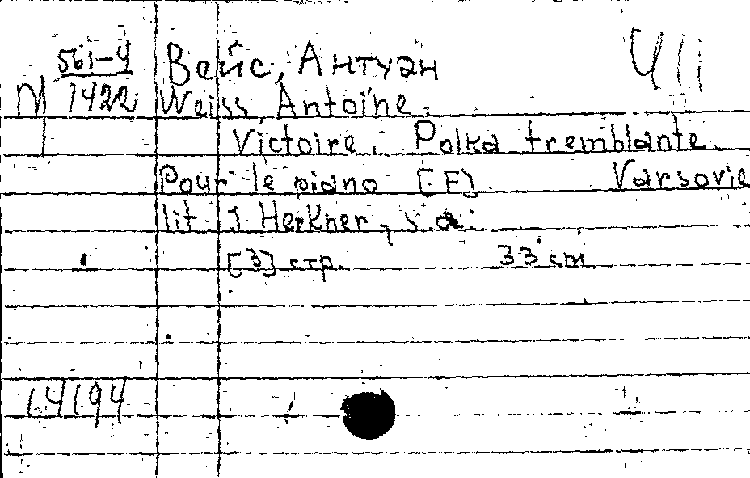 561-4 Вайс, Антуан
М 1422 Weiss, Antoine.
Victoire. Polka tremblante.
Pour le piano [F] Varsovie
lit J. Herkner, s.a.
[3] стр. 33 cm
14194